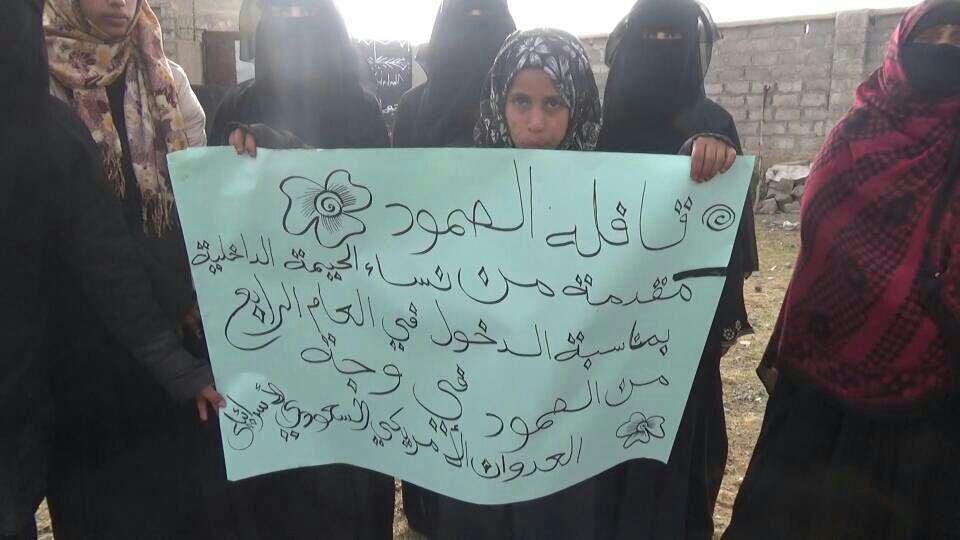 قافلة الصمود
مقدمة من نساء الحيمة الداخلية
بمناسبة الدخول في العام الرابع
من الصمود في وجة
العدوان الأمريكي السعودي الأسرائيلي